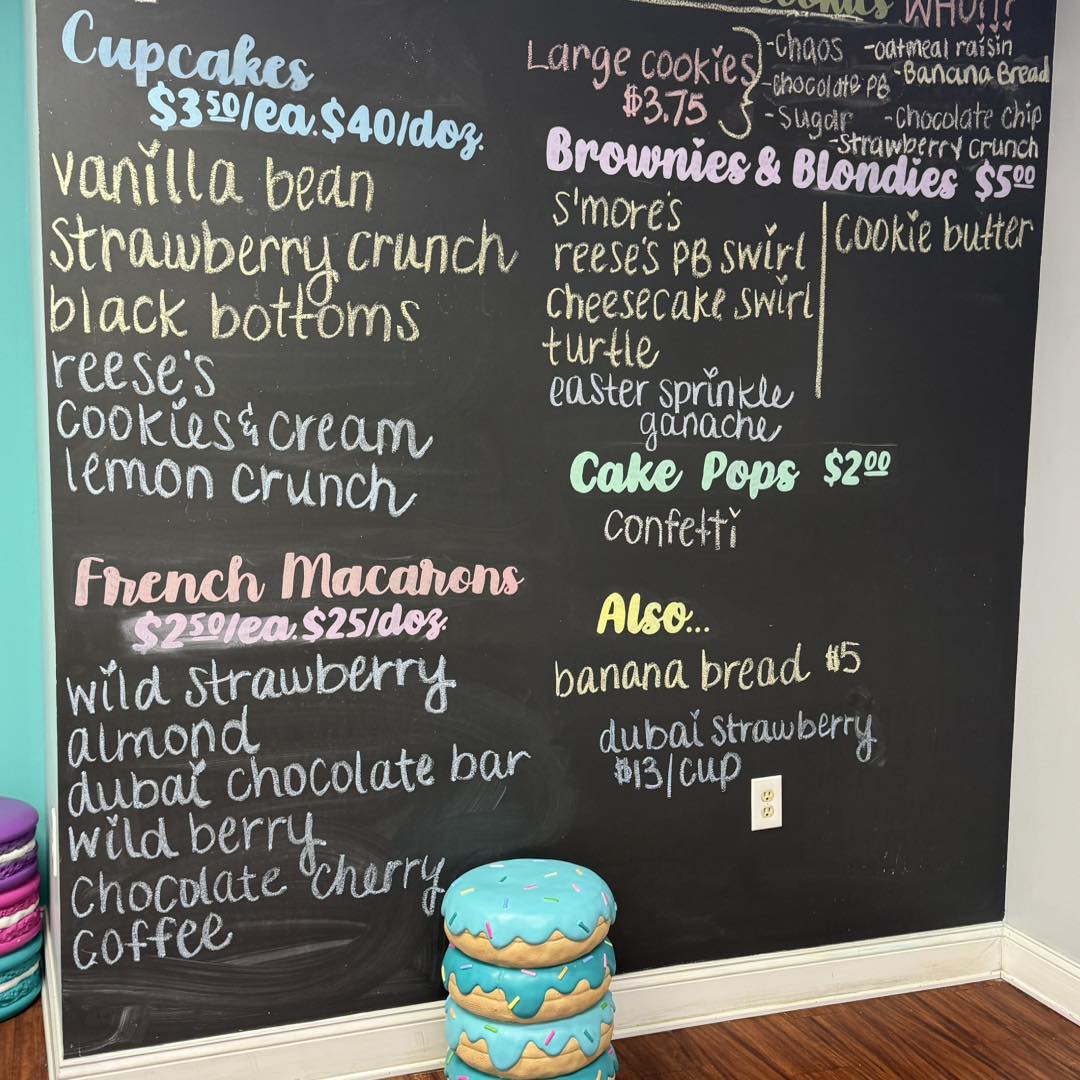 Cupcakes
$3⁵⁰/ea. $40/doz.
vanilla bean
strawberry crunch
black bottoms
reese's
cookies & cream
lemon crunch
French Macarons
$2⁵⁰/ea. $25/doz.
wild strawberry
almond
dubai chocolate bar
wild berry
chocolate cherry
coffee
cookies WHO!?
Large cookies
$3.75
-Chaos -oatmeal raisin
-chocolate PB -Banana Bread
-Sugar -Chocolate chip
-Strawberry crunch
Brownies & Blondies $5⁰⁰
s'more's
reese's PB swirl
cheesecake swirl
turtle
easter sprinkle
ganache
cookie butter
Cake Pops $2⁰⁰
confetti
Also...
banana bread $5
dubai strawberry
$13/cup